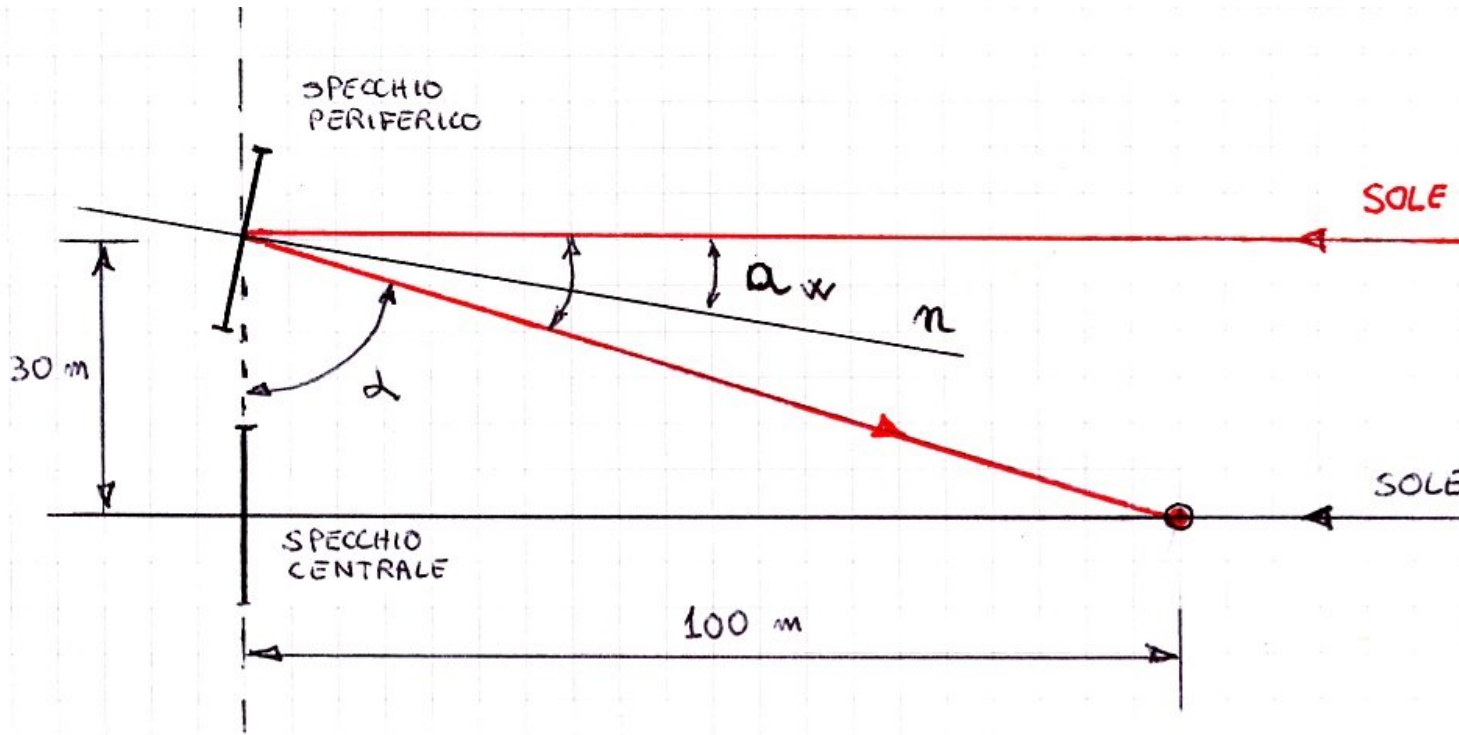 SPECCHIO
PERIFERICO
SOLE
a w
n
30 m
α
SOLE
SPECCHIO
CENTRALE
100 m